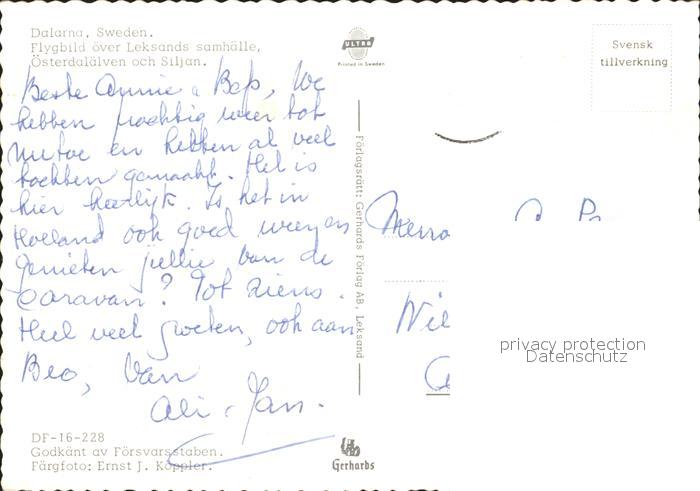 Dalarna, Sweden.
Flygbild över Leksands samhälle,
Österdalälven och Siljan.
ULTRA
Printed in Sweden
Svensk
tillverkning
Beste Annie & Bep, We
hebben prachtig weer tot
nu toe en hebben al veel
tochten gemaakt. Het is
hier heerlijk. Is het in
Holland ook goed weer en
genieten jullie van de
caravan? Tot ziens.
Heel veel groeten, ook aan
Beo, van
Ali & Jan.
Förlagsrätt: Gerhards Förlag AB, Leksand
privacy protection
Datenschutz
DF-16-228
Godkänt av Försvarsstaben.
Färgfoto: Ernst J. Köppler.
Gerhards